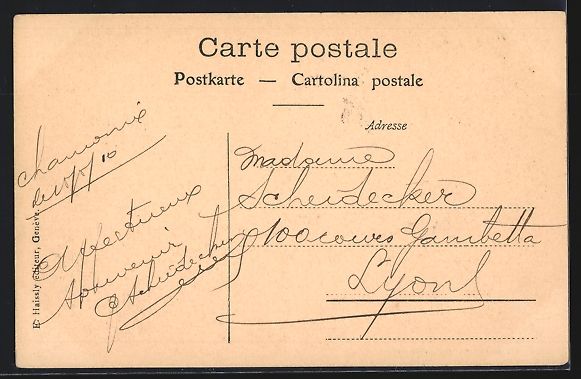 Carte postale
Postkarte — Cartolina postale
Adresse
Chamonix
Affectueux
souvenir
Scheidecker
Madame
Scheidecker
100 cours Gambetta
Lyon
E. Haissly éditeur, Genève